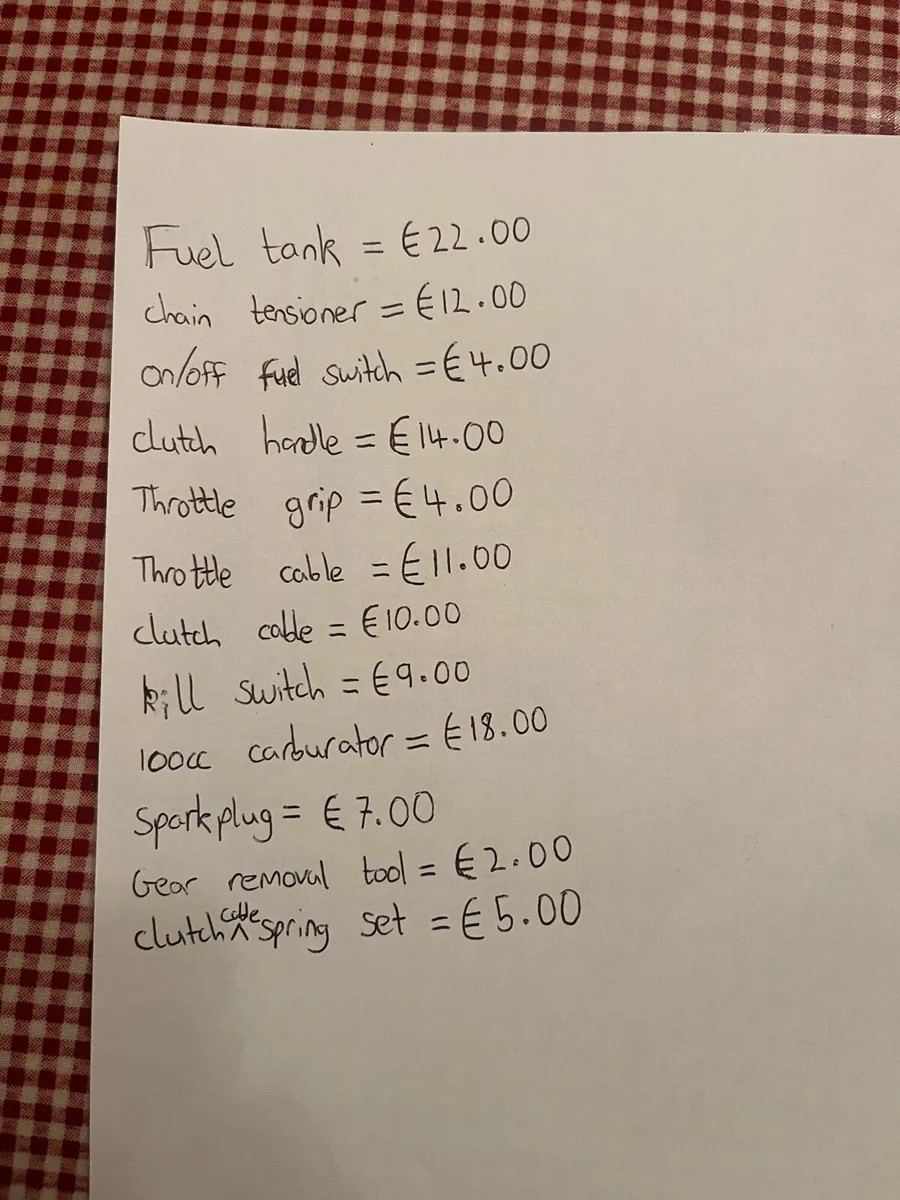 Fuel tank = €22.00
chain tensioner = €12.00
on/off fuel switch = €4.00
clutch handle = €14.00
Throttle grip = €4.00
Throttle cable = €11.00
clutch cable = €10.00
kill switch = €9.00
100cc carburator = €18.00
Sparkplug = €7.00
Gear removal tool = €2.00
clutch cable spring set = €5.00